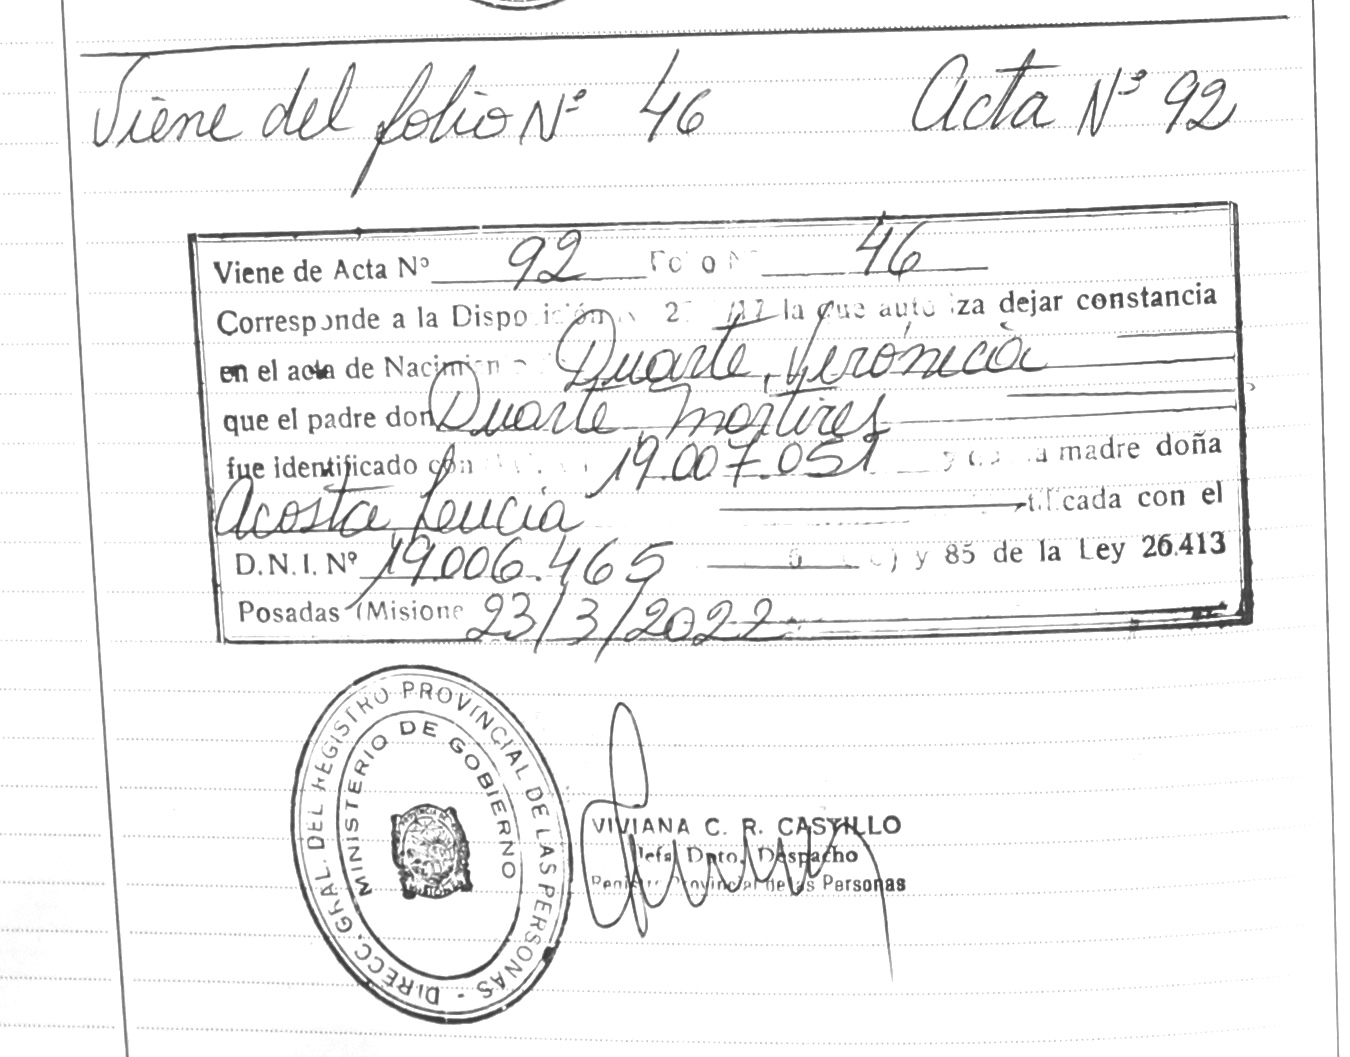 Viene del folio Nº 46 Acta Nº 92
Viene de Acta Nº 92 Folio Nº 46
Corresponde a la Disposición 2 /17 la que autoriza dejar constancia
en el acta de Nacimien Duarte, Verónica
que el padre don Duarte Mártires
fue identificado con 19.007.051 madre doña
Acosta Leucia tificada con el
D.N.I. Nº 19.006.465 y 85 de la Ley 26.413
Posadas (Misione 23/3/2022
DIRECC. GRAL. DEL REGISTRO PROVINCIAL DE LAS PERSONAS -
MINISTERIO DE GOBIERNO
VIVIANA C. R. CASTILLO
Jefa Dpto. Despacho
Registro Provincial de las Personas